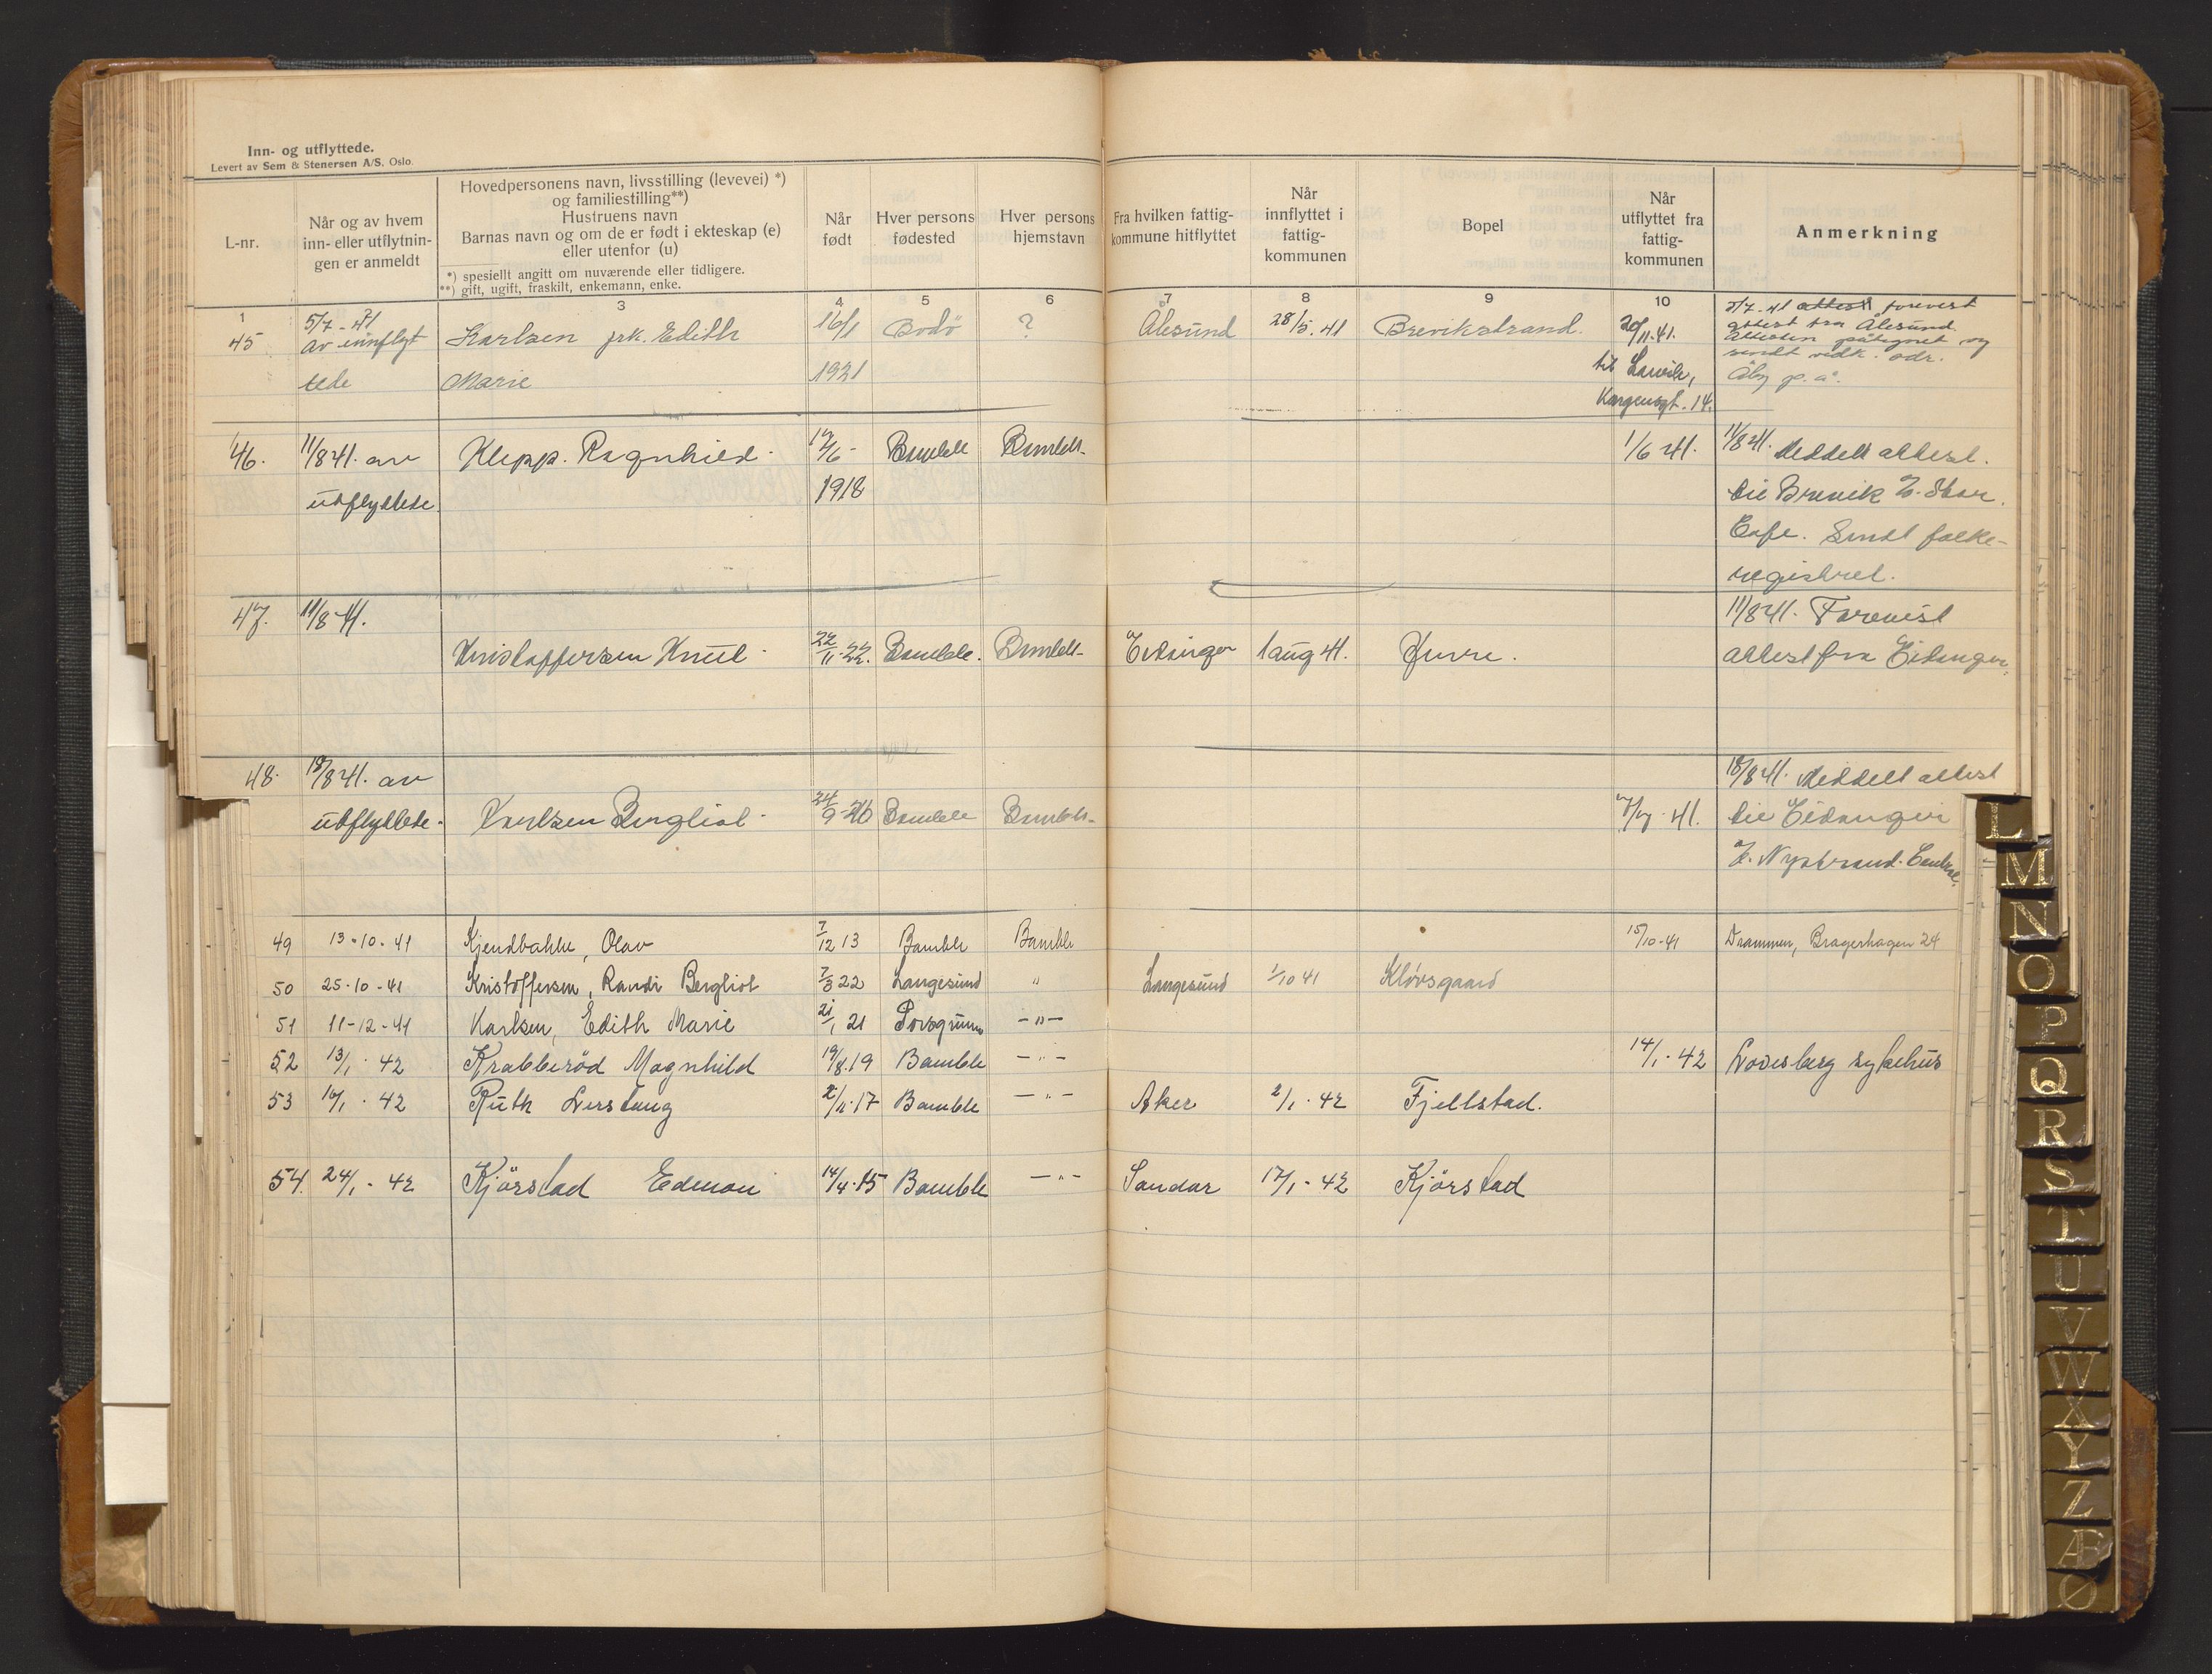 Inn- og utflyttede.
Levert av Sem & Stenersen A/S. Oslo.
L-nr.
Når og av hvem
inn- eller utflytnin-
gen er anmeldt
Hovedpersonens navn, livsstilling (levevei) *)
og familiestilling**)
Hustruens navn
Barnas navn og om de er født i ekteskap (e)
eller utenfor (u)
*) spesiellt angitt om nuværende eller tidligere.
**) gift, ugift, fraskilt, enkemann, enke.
Når
født
Hver persons
fødested
Hver persons
hjemstavn
Fra hvilken fattig-
kommune hitflyttet
Når
innflyttet i
fattig-
kommunen
Bopel
Når
utflyttet fra
fattig-
kommunen
Anmerkning
1 3 4 5 6 7 8 9 10
45 5/7-41 Karlsen frk. Edith 16/1 Bodö ? Ålesund 28/5.41 Brevikstrand. 20/11.41. 5/7.41 attest forevist
av innflyt attest fra Ålesund
Attesten påtegnet og
sendt vedk. adr.
tede Marie 1921 til Larvik, Åby p.å.
46. 11/8 41. av Klepp. Ragnhild. 17/6- Bamble Bamble- 1/6 41. 11/8 41. Meddelt attest.
utflyttede 1918 til Brevik
Cafe. Sendt folke-
registret.
47. 11/8-41. 11/8 41. Forevist
Kristoffersen Knut. 22/11-22. Bamble. Bamble- Eidanger 1 aug 41. attest fra Eidanger.
48. 18/8 41. av 18/8 41. Meddelt attest
utflyttede. Karlsen Bergliot. 24/9-26 Bamble Bamble- 7/7-41. til Eidanger
49 13-10-41 Kjendbakke, Olav 7/12 13 Bamble Bamble 15/10-41 Drammen, Bragerhagen 24
50 25-10-41 Kristoffersen, Randi Bergliot 7/3 22 Langesund " Langesund 1/10 41 Kløvsgaard
51 11-12-41 Karlsen, Edith Marie 21/1 21 Porsgrunn -"-
52 13/1.42 Krabberød Magnhild 19/8.19 Bamble -"- 14/1.42 Lovisberg sykehus
53 16/1.42 Ruth Lerstang 2/11.17 Bamble -"- Aker 2/1.42 Fjellstad.
54. 24/1-42 Kjörstad Edmon 14/4.15 Bamble -"- Sandar 17/1-42 Kjörstad
L
M
N
O
P
Q
R
S
T
U
V
W
X
Y
Z
Æ
Ø